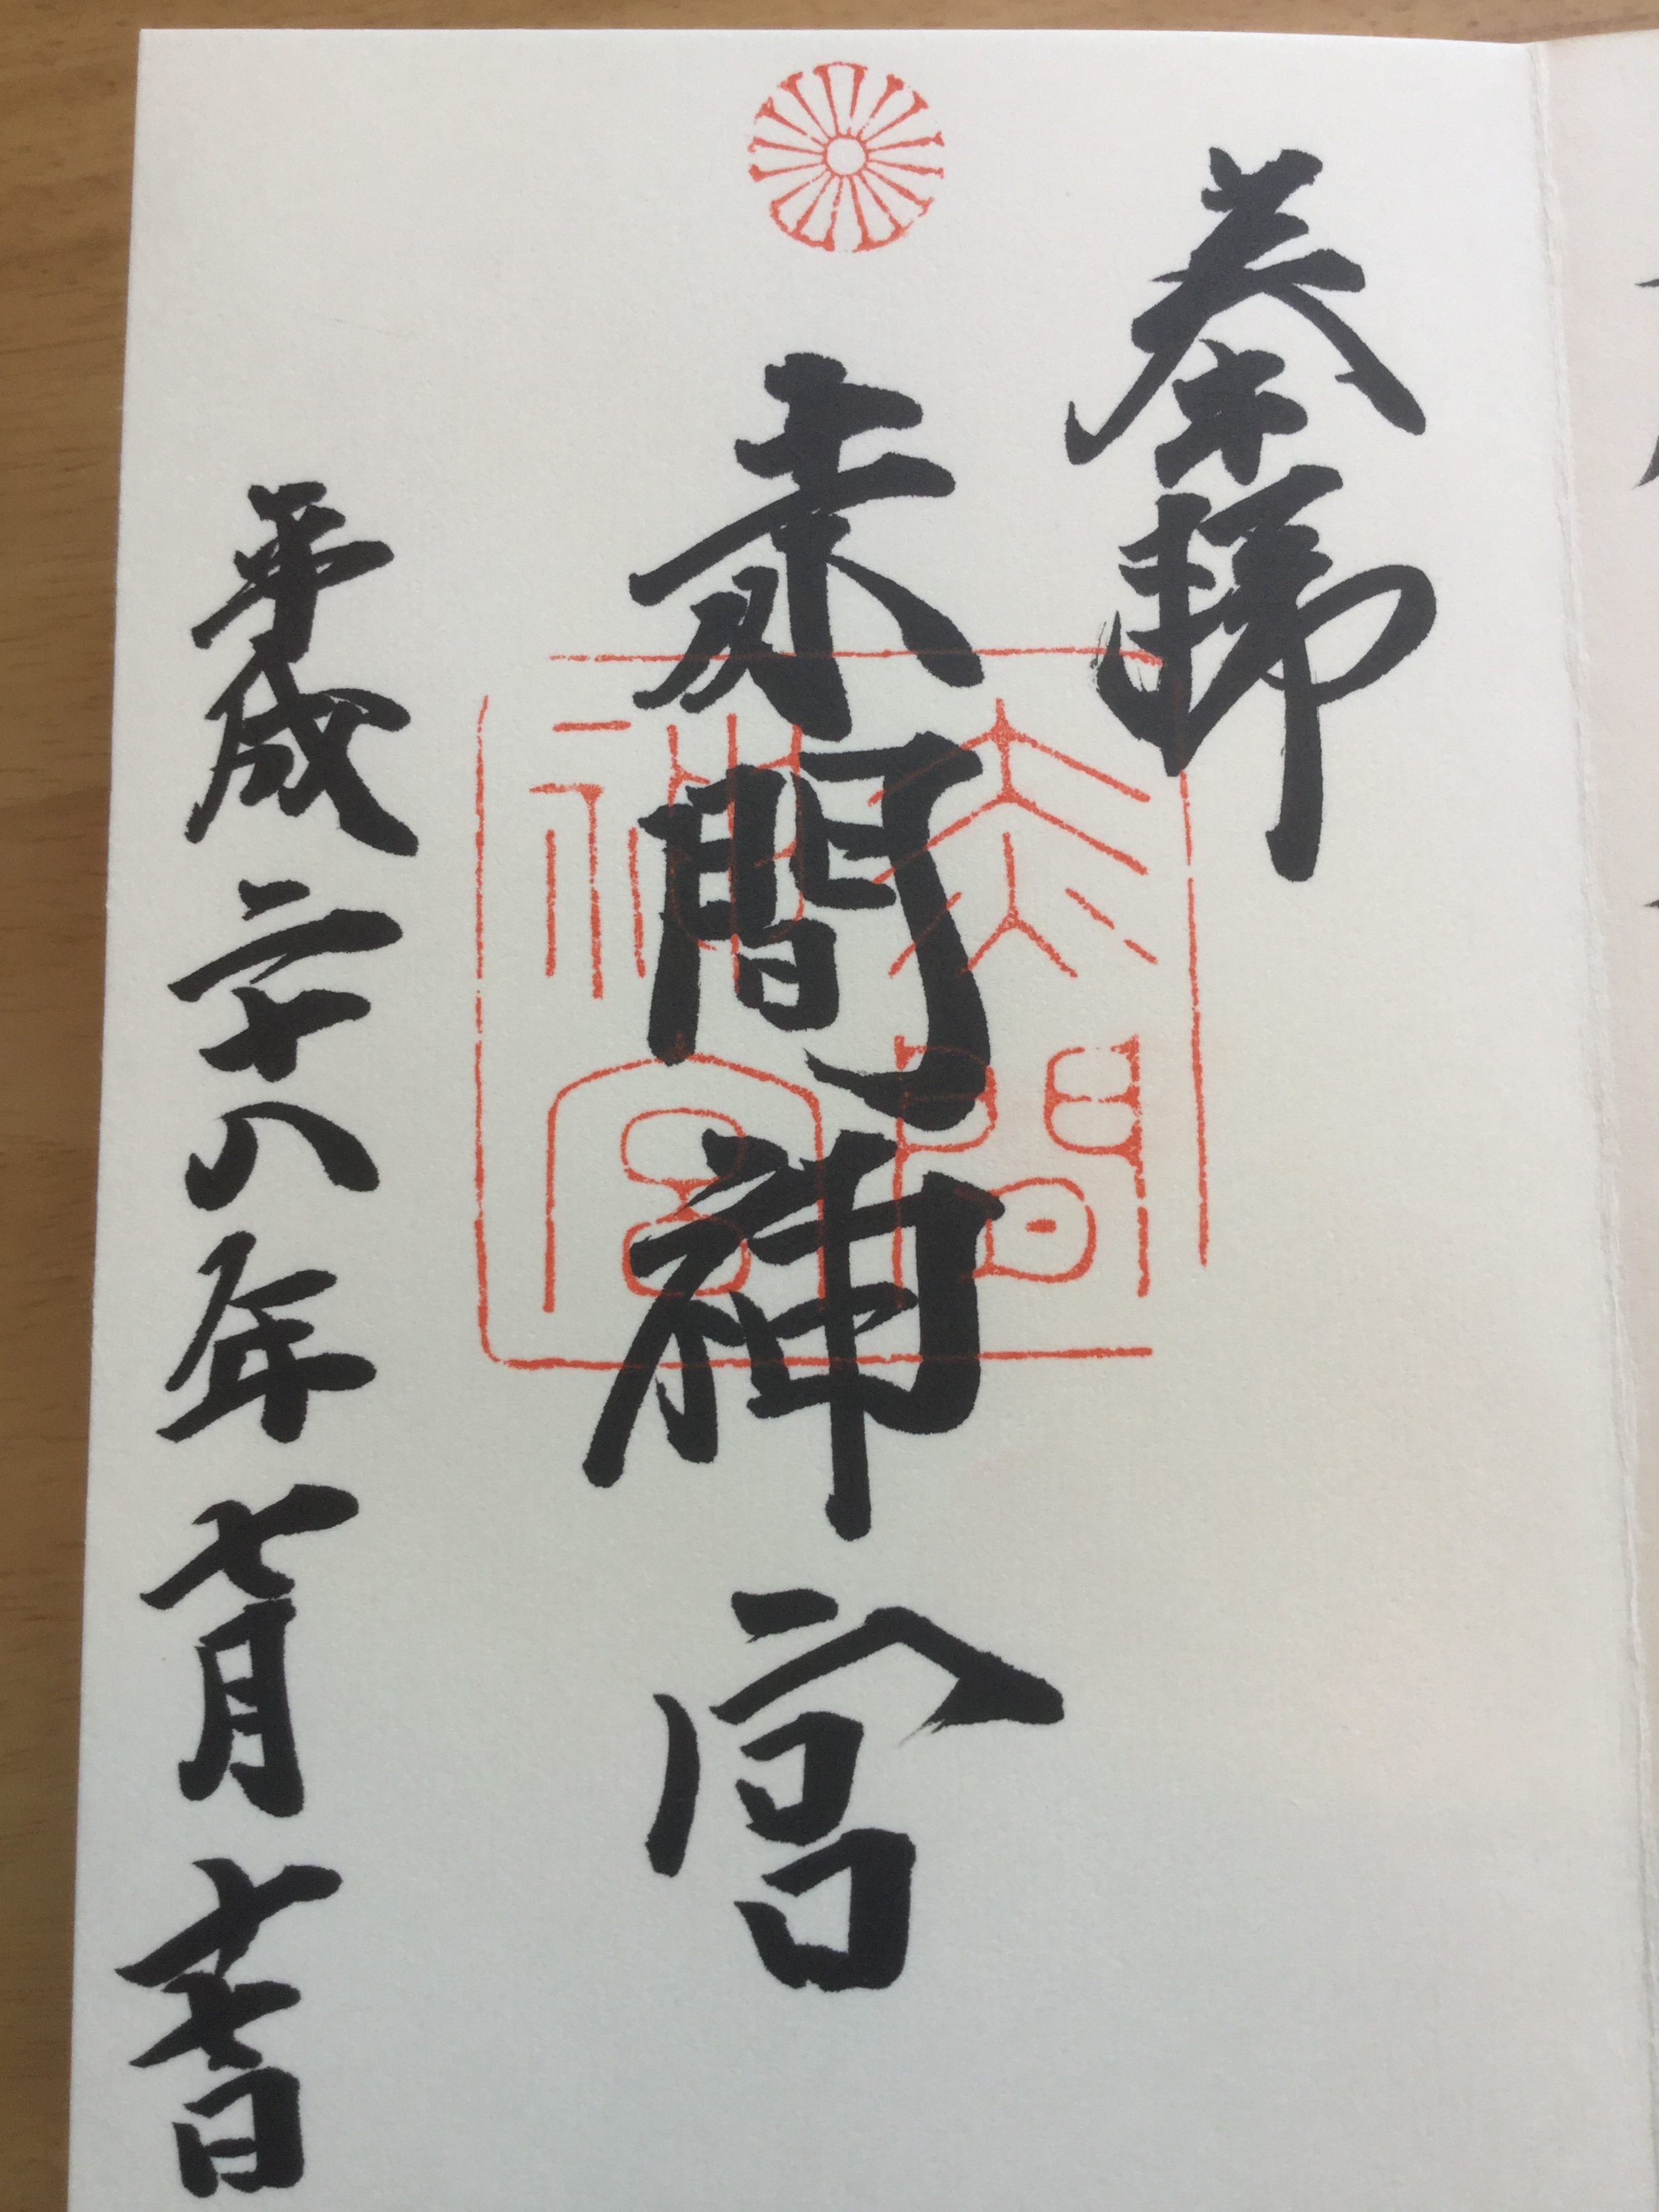 奉拝
赤間神宮
平成二十八年七月十七日
赤間
神宮